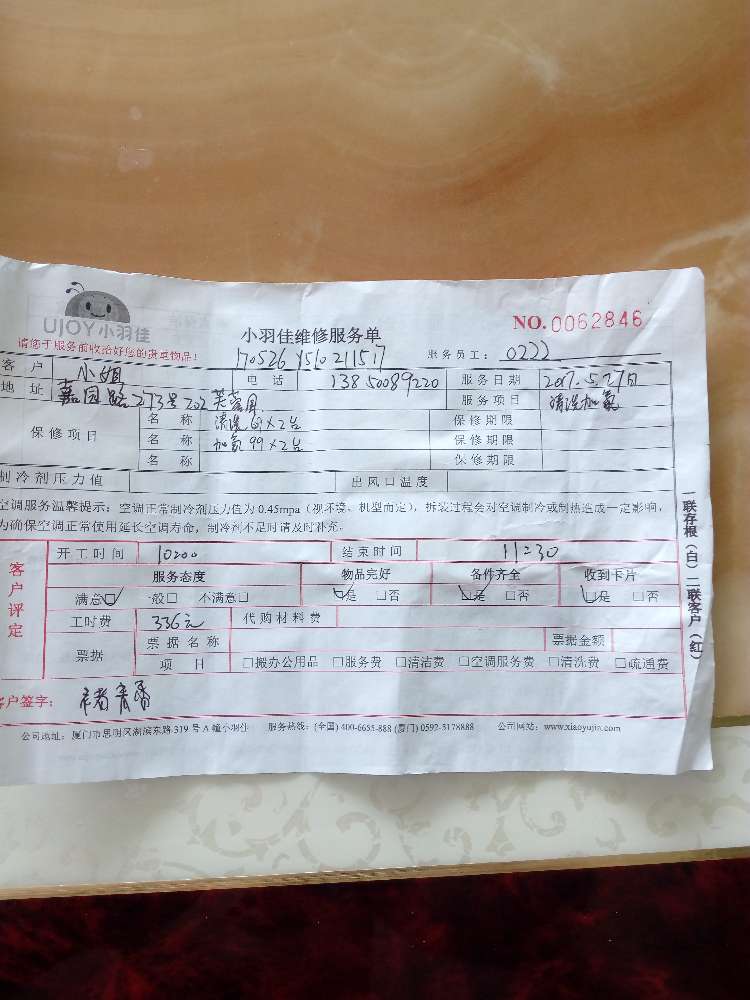 UJOY小羽佳
请您于服务前收拾好您的贵重物品!
小羽佳维修服务单
NO.0062846
170526 Y510211517
服务员工: 0222
客户 小姐 电话 13850089220 服务日期 2017.5.27日
地址 嘉园路273号202 服务项目 清洗加氟
保修项目 名称 清洗69×2台 保修期限
名称 加氟99×2台 保修期限
名称 保修期限
制冷剂压力值 出风口温度
空调服务温馨提示:空调正常制冷剂压力值为0.45mpa(视环境、机型而定),拆装过程会对空调制冷或制热造成一定影响,
为确保空调正常使用延长空调寿命,制冷剂不足时请及时补充。
客户评定
开工时间 10:00 结束时间 11:30
服务态度 物品完好 备件齐全 收到卡片
满意☑ 一般□ 不满意□ ☑是 □否 ☑是 □否 ☑是 □否
工时费 336元 代购材料费
票据 票据名称 票据金额
项目 □搬办公用品 □服务费 □清洁费 □空调服务费 □清洗费 □疏通费
客户签字:
公司地址:厦门市思明区湖滨东路319号A幢小羽佳 服务热线:(全国)400-6655-888 (厦门) 0592-5178888 公司网站:www.xiaoyujia.com
一联存根(白)二联客户(红)